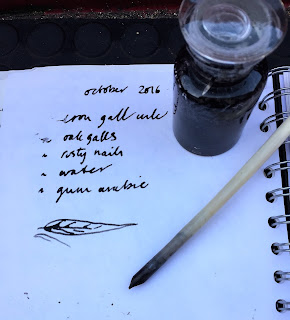 october 2016
iron gall ink
oak galls
rusty nails
water
gum arabic